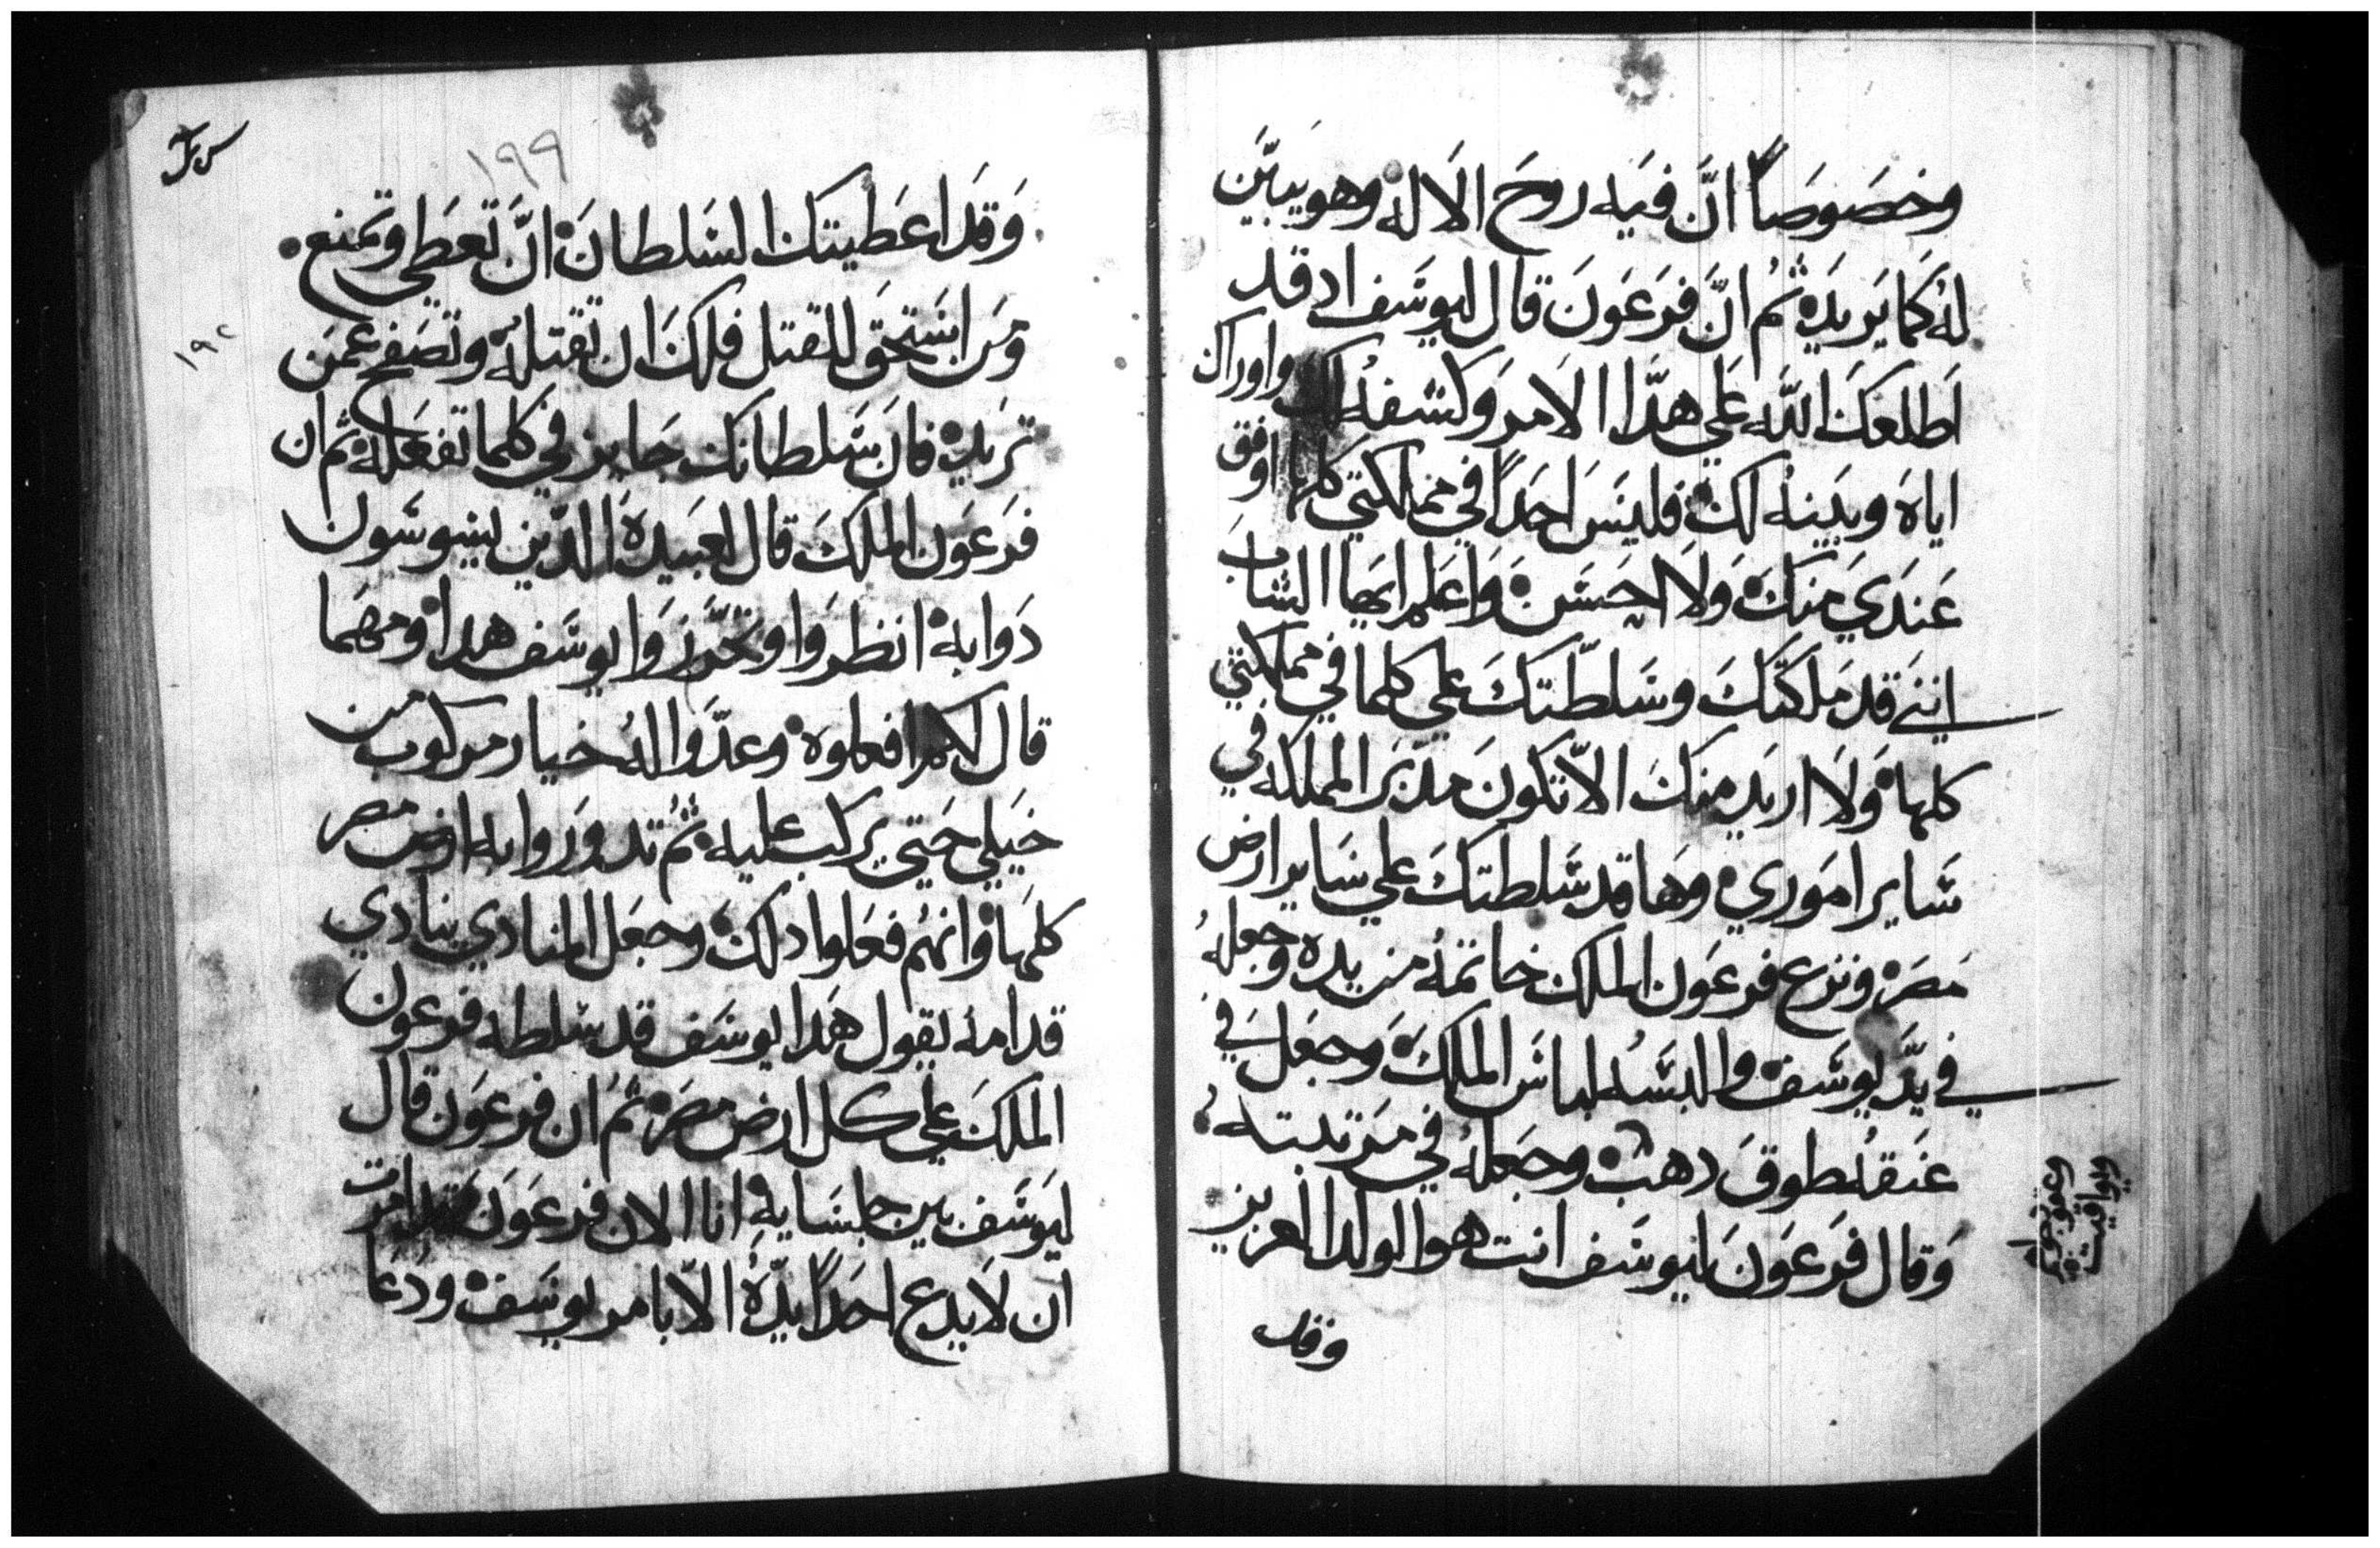 وخصَوصَاً انَّ فيَه روحَ الالَه وهو يبيّن
لهُ كما يَريدَه ثمُ انَّ فرَعوَن قال ليوسَف اد قد
اَطلعكَ اللّه عَلي هدَّا الامر وَكشفهُ لك واوراك
اياهَ وبيَنهُ لكَ فليسَ احدَاً في مملكتي كلها اوفق
عَندَي منكَ وَلاَ احسَن وَاعَلم ايهاَ الشاب
انني قد ملكتكَ وسَلطّتكَ علي كلما في مملكتي
كلها وَلاَ اريَد منكَ الاّ تكونَ مدَبرَ المملكه في
سَاير امَوري وهَا قد سَلطتكَ علي سَاير ارض
مصَر ونزع فرعوَن الملك خاتمهُ من يده وَجعلهُ
في يدَّ يوسَف والبسَّهُ لباسَ الملكَ وَجعَل في
عنَقهُ طوقَ دهبَ وجَعلهُ في مرَتبته
وَقال فرَعوَنَ ليوسَف انت هو الولد العزيز
وقد
وَقدَ اعَطيتكَ السَلطانَ انَّ تعَطي وتمنع
ومَن استحَقَ للقتل فلكَ ان تقتلهُ وتصَفح عمَن
تريَده فانَ سَلطانك جَايز في كلما تفعَله ثم ان
فرَعوَن الملكَ قال لعبَيدهَ الدّين يسَوسَون
دَوابه انظروَا وتحَرّزوَا ليوسَف هدا ومهَما
قال لكم افعلوه وعدّوَا لهُ خيار مركوب من
خيَلي حَتي يركب عليه ثمُ تدوَروا به ارض مصر
كلهَا وَانهُم فعَلوا دلكَ وجعَل المنادي ينادي
قدامهُ يقول هَدا يوسَف قد سَلطه فرعون
الملكَ علي كل ارض مصَر ثمَ ان فرعوَن قال
ليوَسَف بين جلسَايهِ انا الان فرعوَنَ قد امرت
ان لاَيدع احدَاً يدّهُ الاّ بامر يوسَف ودَعَا
١٩٩
١٩٢